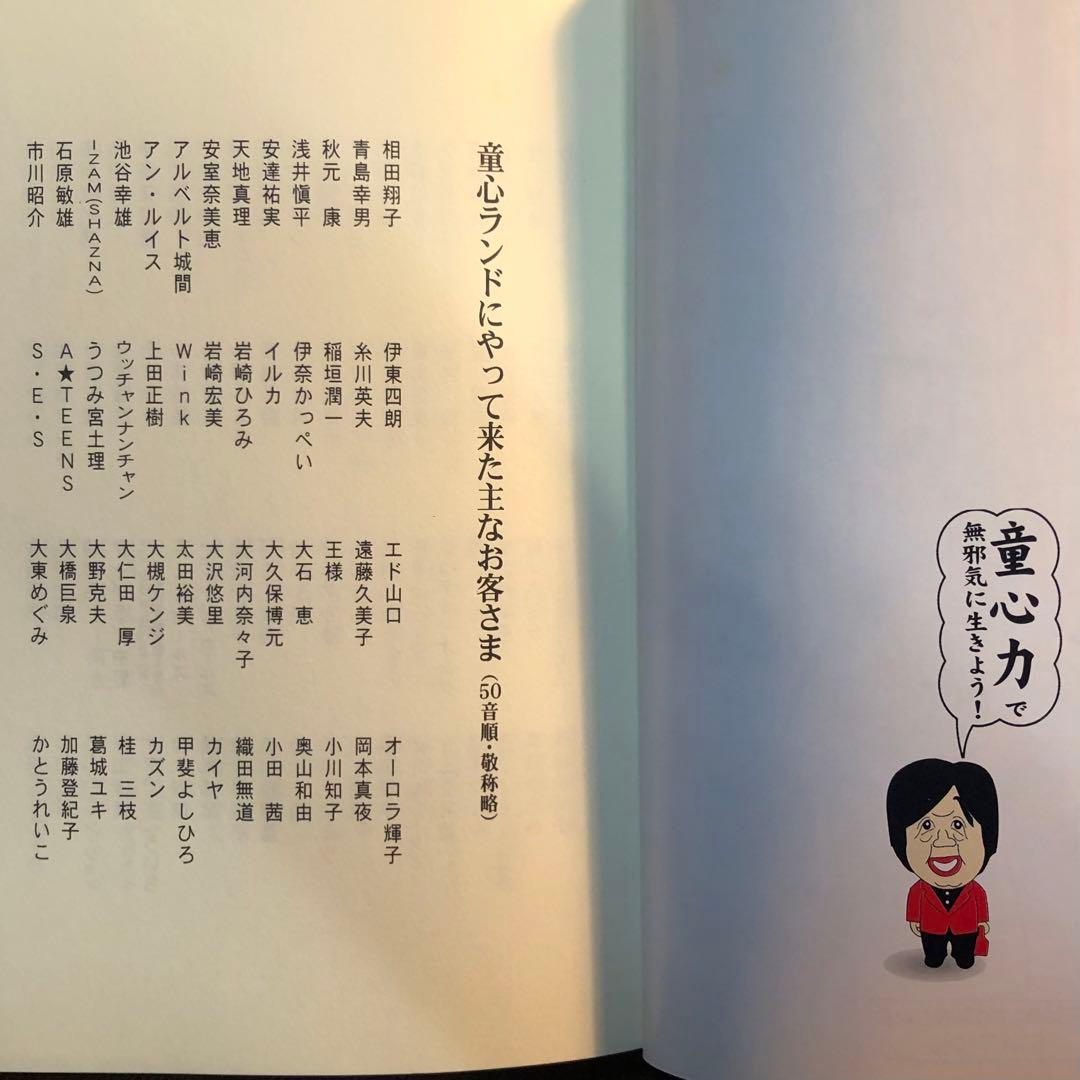 童心力で
無邪気に生きよう！
童心ランドにやって来た主なお客さま（50音順・敬称略）
相田翔子
青島幸男
秋元　康
浅井愼平
安達祐実
天地真理
安室奈美恵
アルベルト城間
アン・ルイス
池谷幸雄
IZAM（SHAZNA）
石原敏雄
市川昭介
伊東四朗
糸川英夫
稲垣潤一
伊奈かっぺい
イルカ
岩崎ひろみ
岩崎宏美
Wink
上田正樹
ウッチャンナンチャン
うつみ宮土理
A★TEENS
S・E・S
エド山口
遠藤久美子
王様
大石　恵
大久保博元
大河内奈々子
大沢悠里
太田裕美
大槻ケンヂ
大仁田　厚
大野克夫
大橋巨泉
大東めぐみ
オーロラ輝子
岡本真夜
小川知子
奥山和由
小田　茜
織田無道
カイヤ
甲斐よしひろ
カズン
桂　三枝
葛城ユキ
加藤登紀子
かとうれいこ